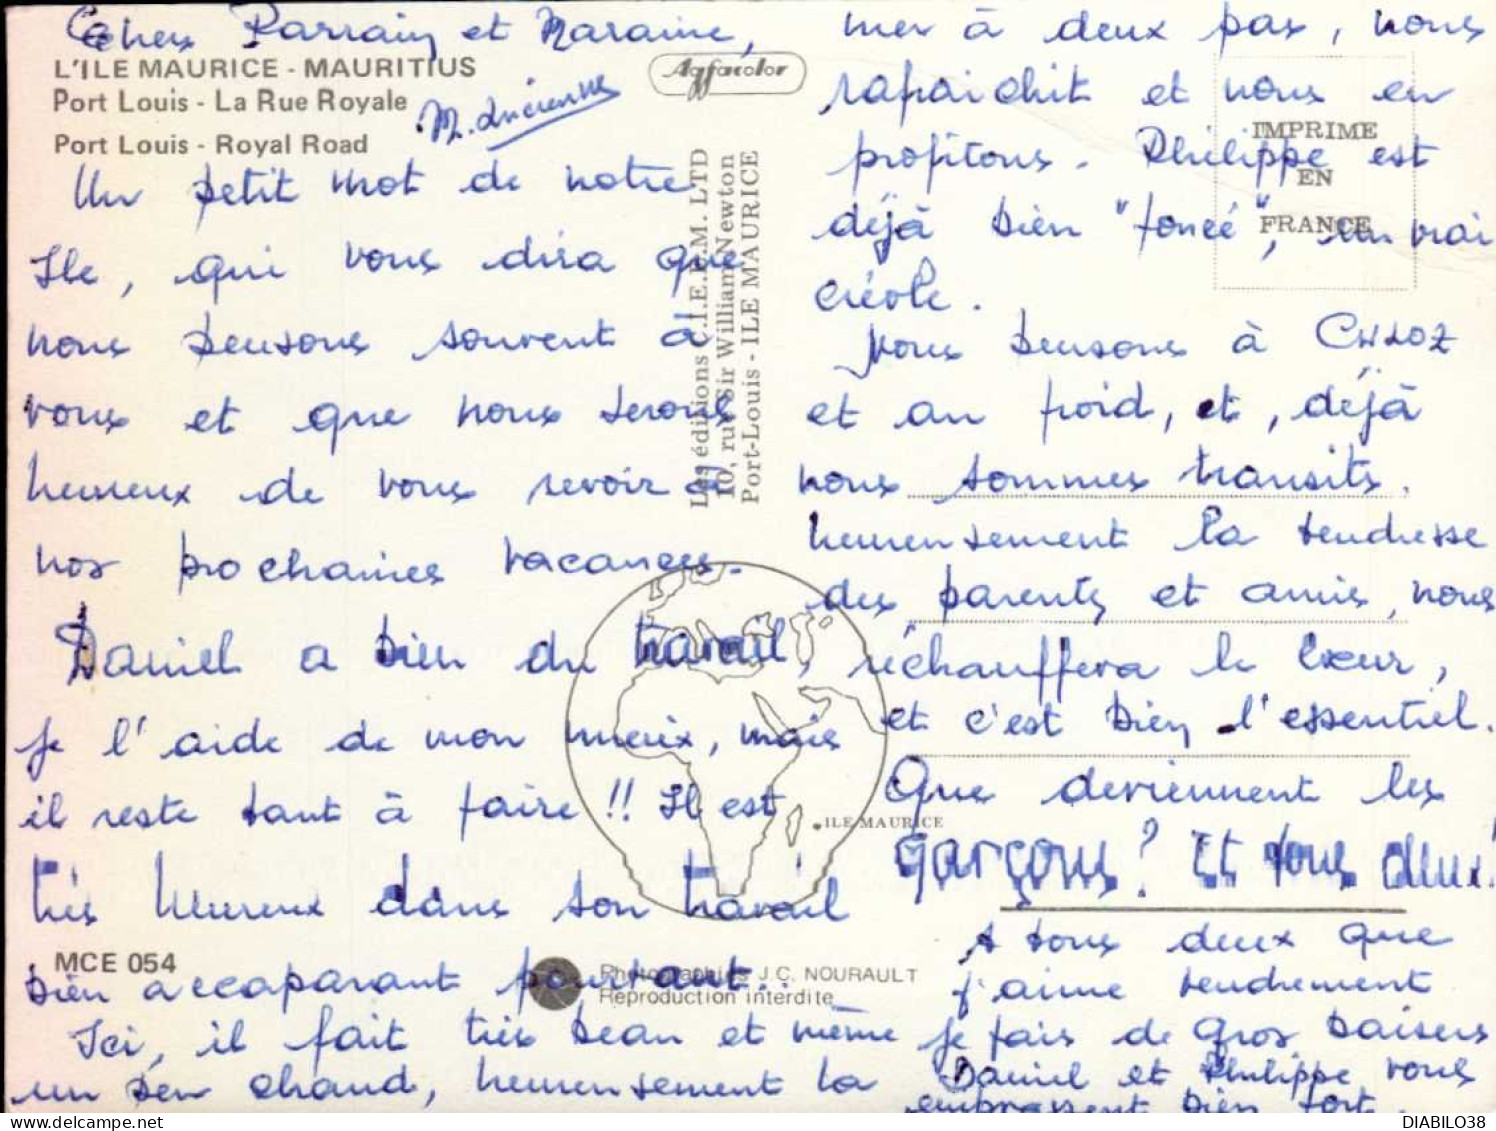 Cher Parrain et Maraine,
L'ILE MAURICE - MAURITIUS
Port Louis - La Rue Royale
Port Louis - Royal Road
M. Lucienne
Agfacolor
Un petit mot de notre
Ile, qui vous dira que
nous pensons souvent à
vous et que nous serons
heureux de vous revoir à
nos prochaines vacances.
Daniel a bien du travail,
je l'aide de mon mieux, mais
il reste tant à faire !! Il est
très heureux dans son travail
MCE 054
bien accaparant pourtant..
Ici, il fait très beau et même
un peu chaud, heureusement la
Les éditions
M. LTD
10, rue Sir William Newton
Port-Louis - ILE MAURICE
ILE MAURICE
Photographies J.C. NOURAULT
Reproduction interdite
mer à deux pas, nous
rafraichit et nous en
profitons. Philippe est
déjà bien "foncé", un vrai
créole.
IMPRIME
EN
FRANCE
Nous pensons à
et au froid, et, déjà
nous sommes transits.
heureusement la tendresse
des parents et amis, nous
réchauffera le cœur,
et c'est bien l'essentiel.
Que deviennent les
garçons? Et vous deux?
A vous deux que
j'aime tendrement
je fais de gros baisers
Daniel et Philippe vous
embrassent bien fort.
DIABILO38